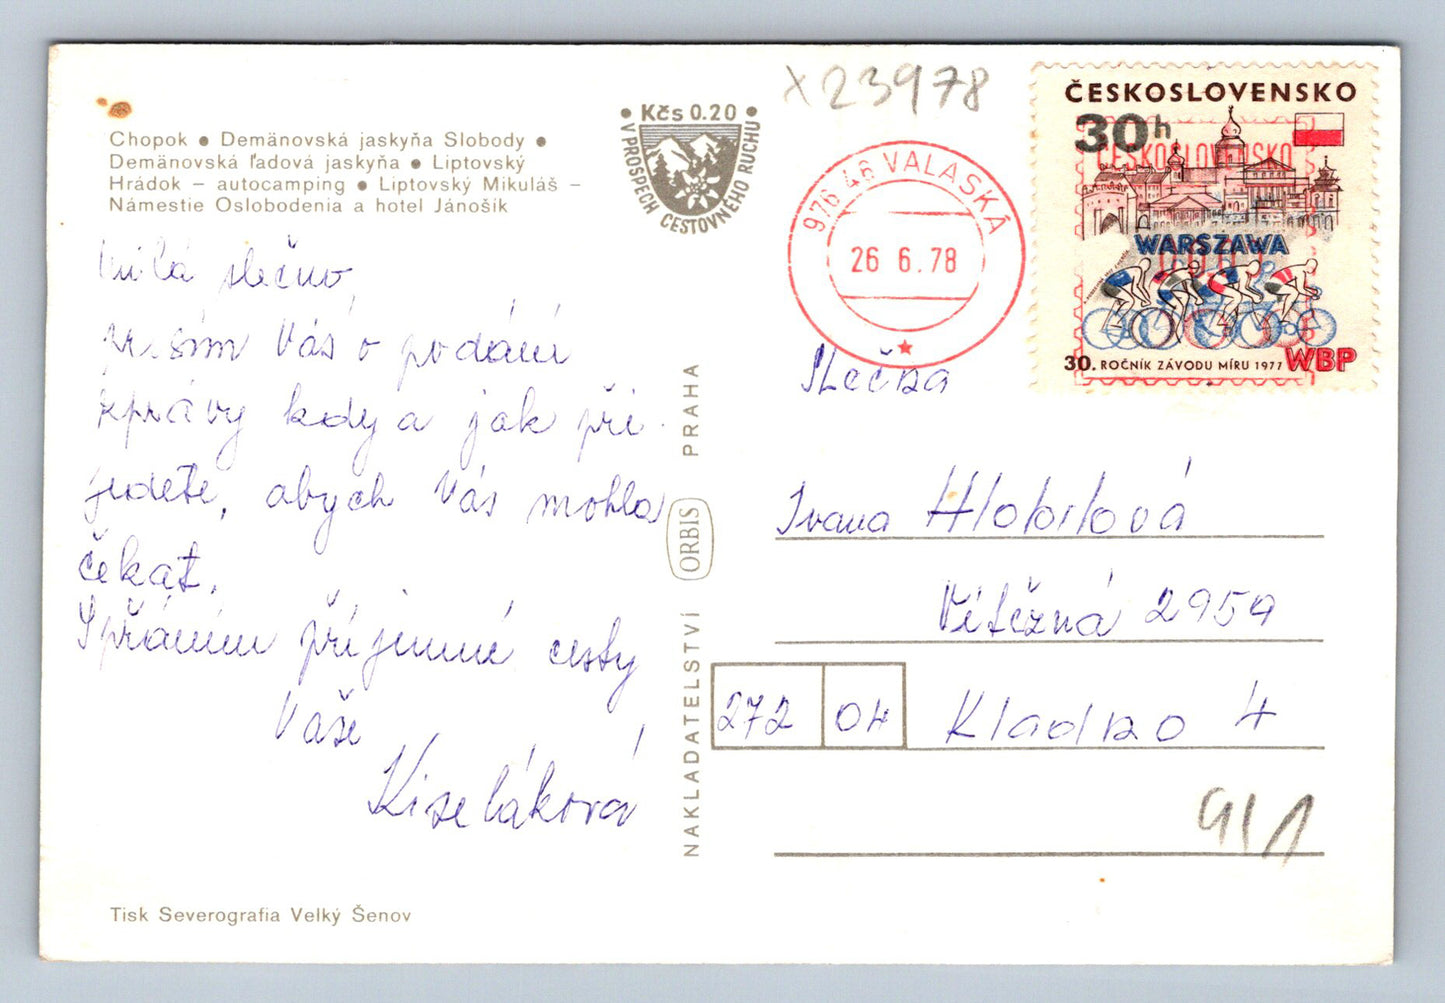 Chopok ● Demänovská jaskyňa Slobody ●
Demänovská ľadová jaskyňa ● Liptovský
Hrádok – autocamping ● Liptovský Mikuláš –
Námestie Oslobodenia a hotel Jánošík
• Kčs 0.20 •
V PROSPECH CESTOVNÉHO RUCHU
x 23978
976 46 VALASKÁ
26 6.78
ČESKOSLOVENSKO
30h
ČESKOSLOVENSKO
WARSZAWA
30. ROČNÍK ZÁVODU MÍRU 1977
WBP
Milá slečno,
prosím Vás o podání
zprávy kdy a jak při-
jedete, abych Vás mohla
čekat.
S přáním příjemné cesty
Vaše
Kiseláková
NAKLADATELSTVÍ ORBIS PRAHA
Slečna
Ivana Hlobilová
Vítězná 2959
272 04 Kladno 4
91/1
Tisk Severografia Velký Šenov